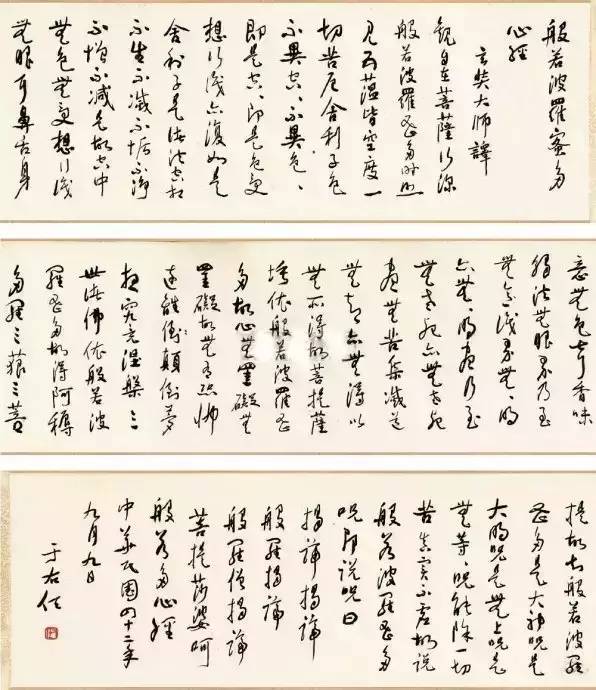 般若波羅蜜多
心經
玄奘大師譯
觀自在菩薩行深
般若波羅蜜多時照
見五蘊皆空度一
切苦厄舍利子色
不異空、不異色、
即是空、即是色受
想行識亦復如是
舍利子是諸法空相
不生不滅不垢不淨
不增不減是故空中
無色無受想行識
無眼耳鼻舌身
意無色聲香味
觸法無眼界乃至
無意識界無、明
亦無、明盡乃至
無老死亦無老死
盡無苦集滅道
無智亦無得以
無所得故菩提薩
埵依般若波羅蜜
多故心無罣礙無
罣礙故無有恐怖
遠離顛倒夢
想究竟涅槃三
世諸佛依般若波
羅蜜多故得阿耨
多羅三藐三菩
提故知般若波羅
蜜多是大神呪是
大明呪是無上呪是
無等、呪能除一切
苦真實不虛故說
般若波羅蜜多
呪即說呪曰
揭諦揭諦
般羅揭諦
般羅僧揭諦
菩提莎婆呵
般若多心經
中華民國四十二年
九月九日
于右任